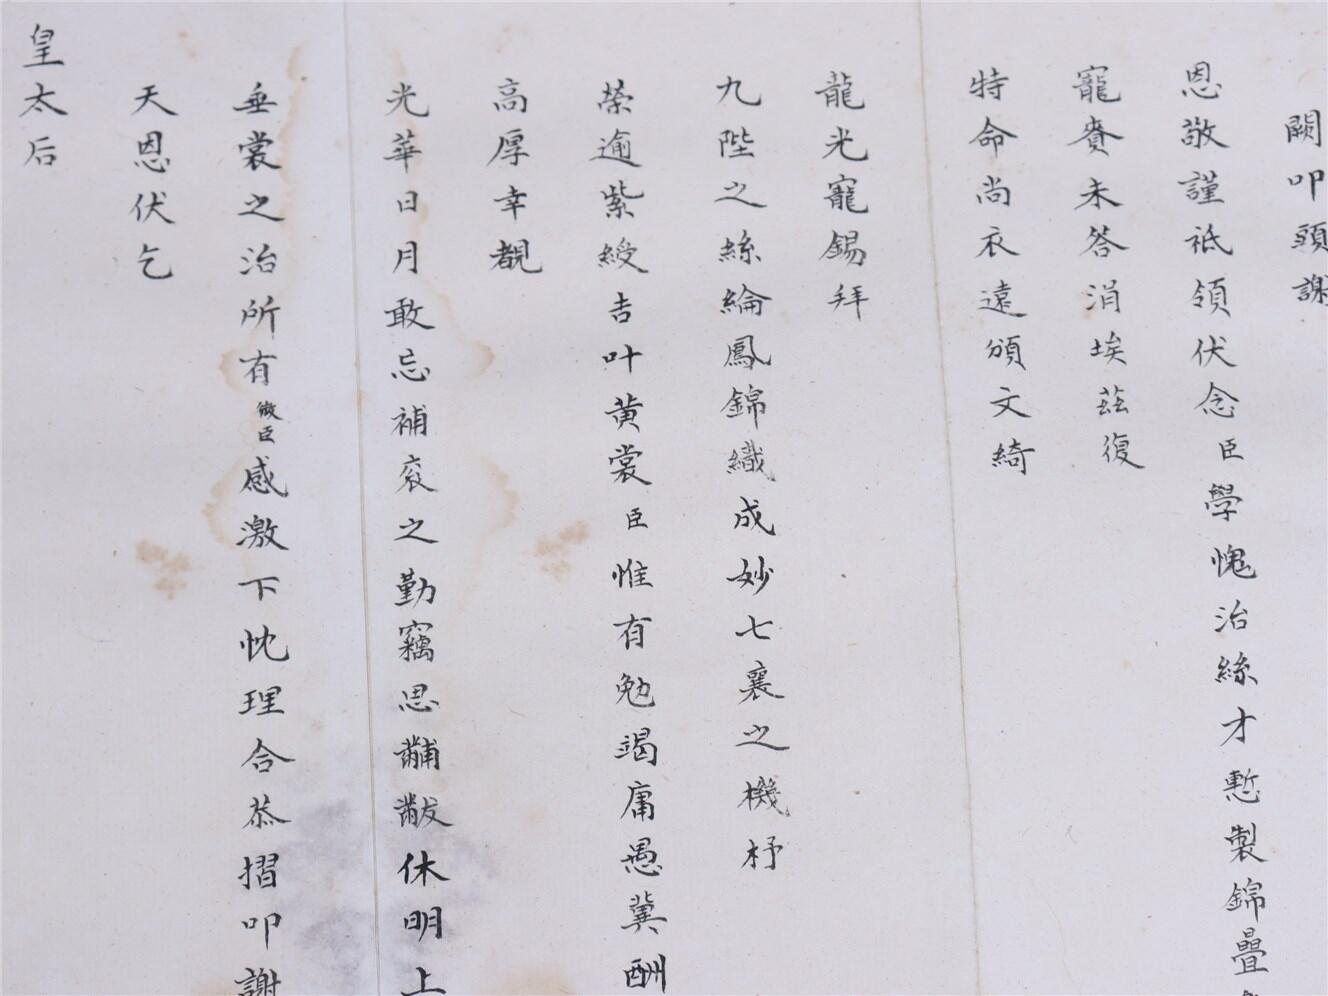 闕叩頭謝
恩敬謹祗領伏念臣學愧治絲才慙製錦疊
寵賚未答涓埃茲復
特命尚衣遠頒文綺
龍光寵錫拜
九陛之絲綸鳳錦織成妙七襄之機杼
榮逾紫綬吉叶黃裳臣惟有勉竭庸愚冀酬
高厚幸覩
光華日月敢忘補袞之勤竊思黼黻休明上
垂裳之治所有微臣感激下忱理合恭摺叩謝
天恩伏乞
皇太后